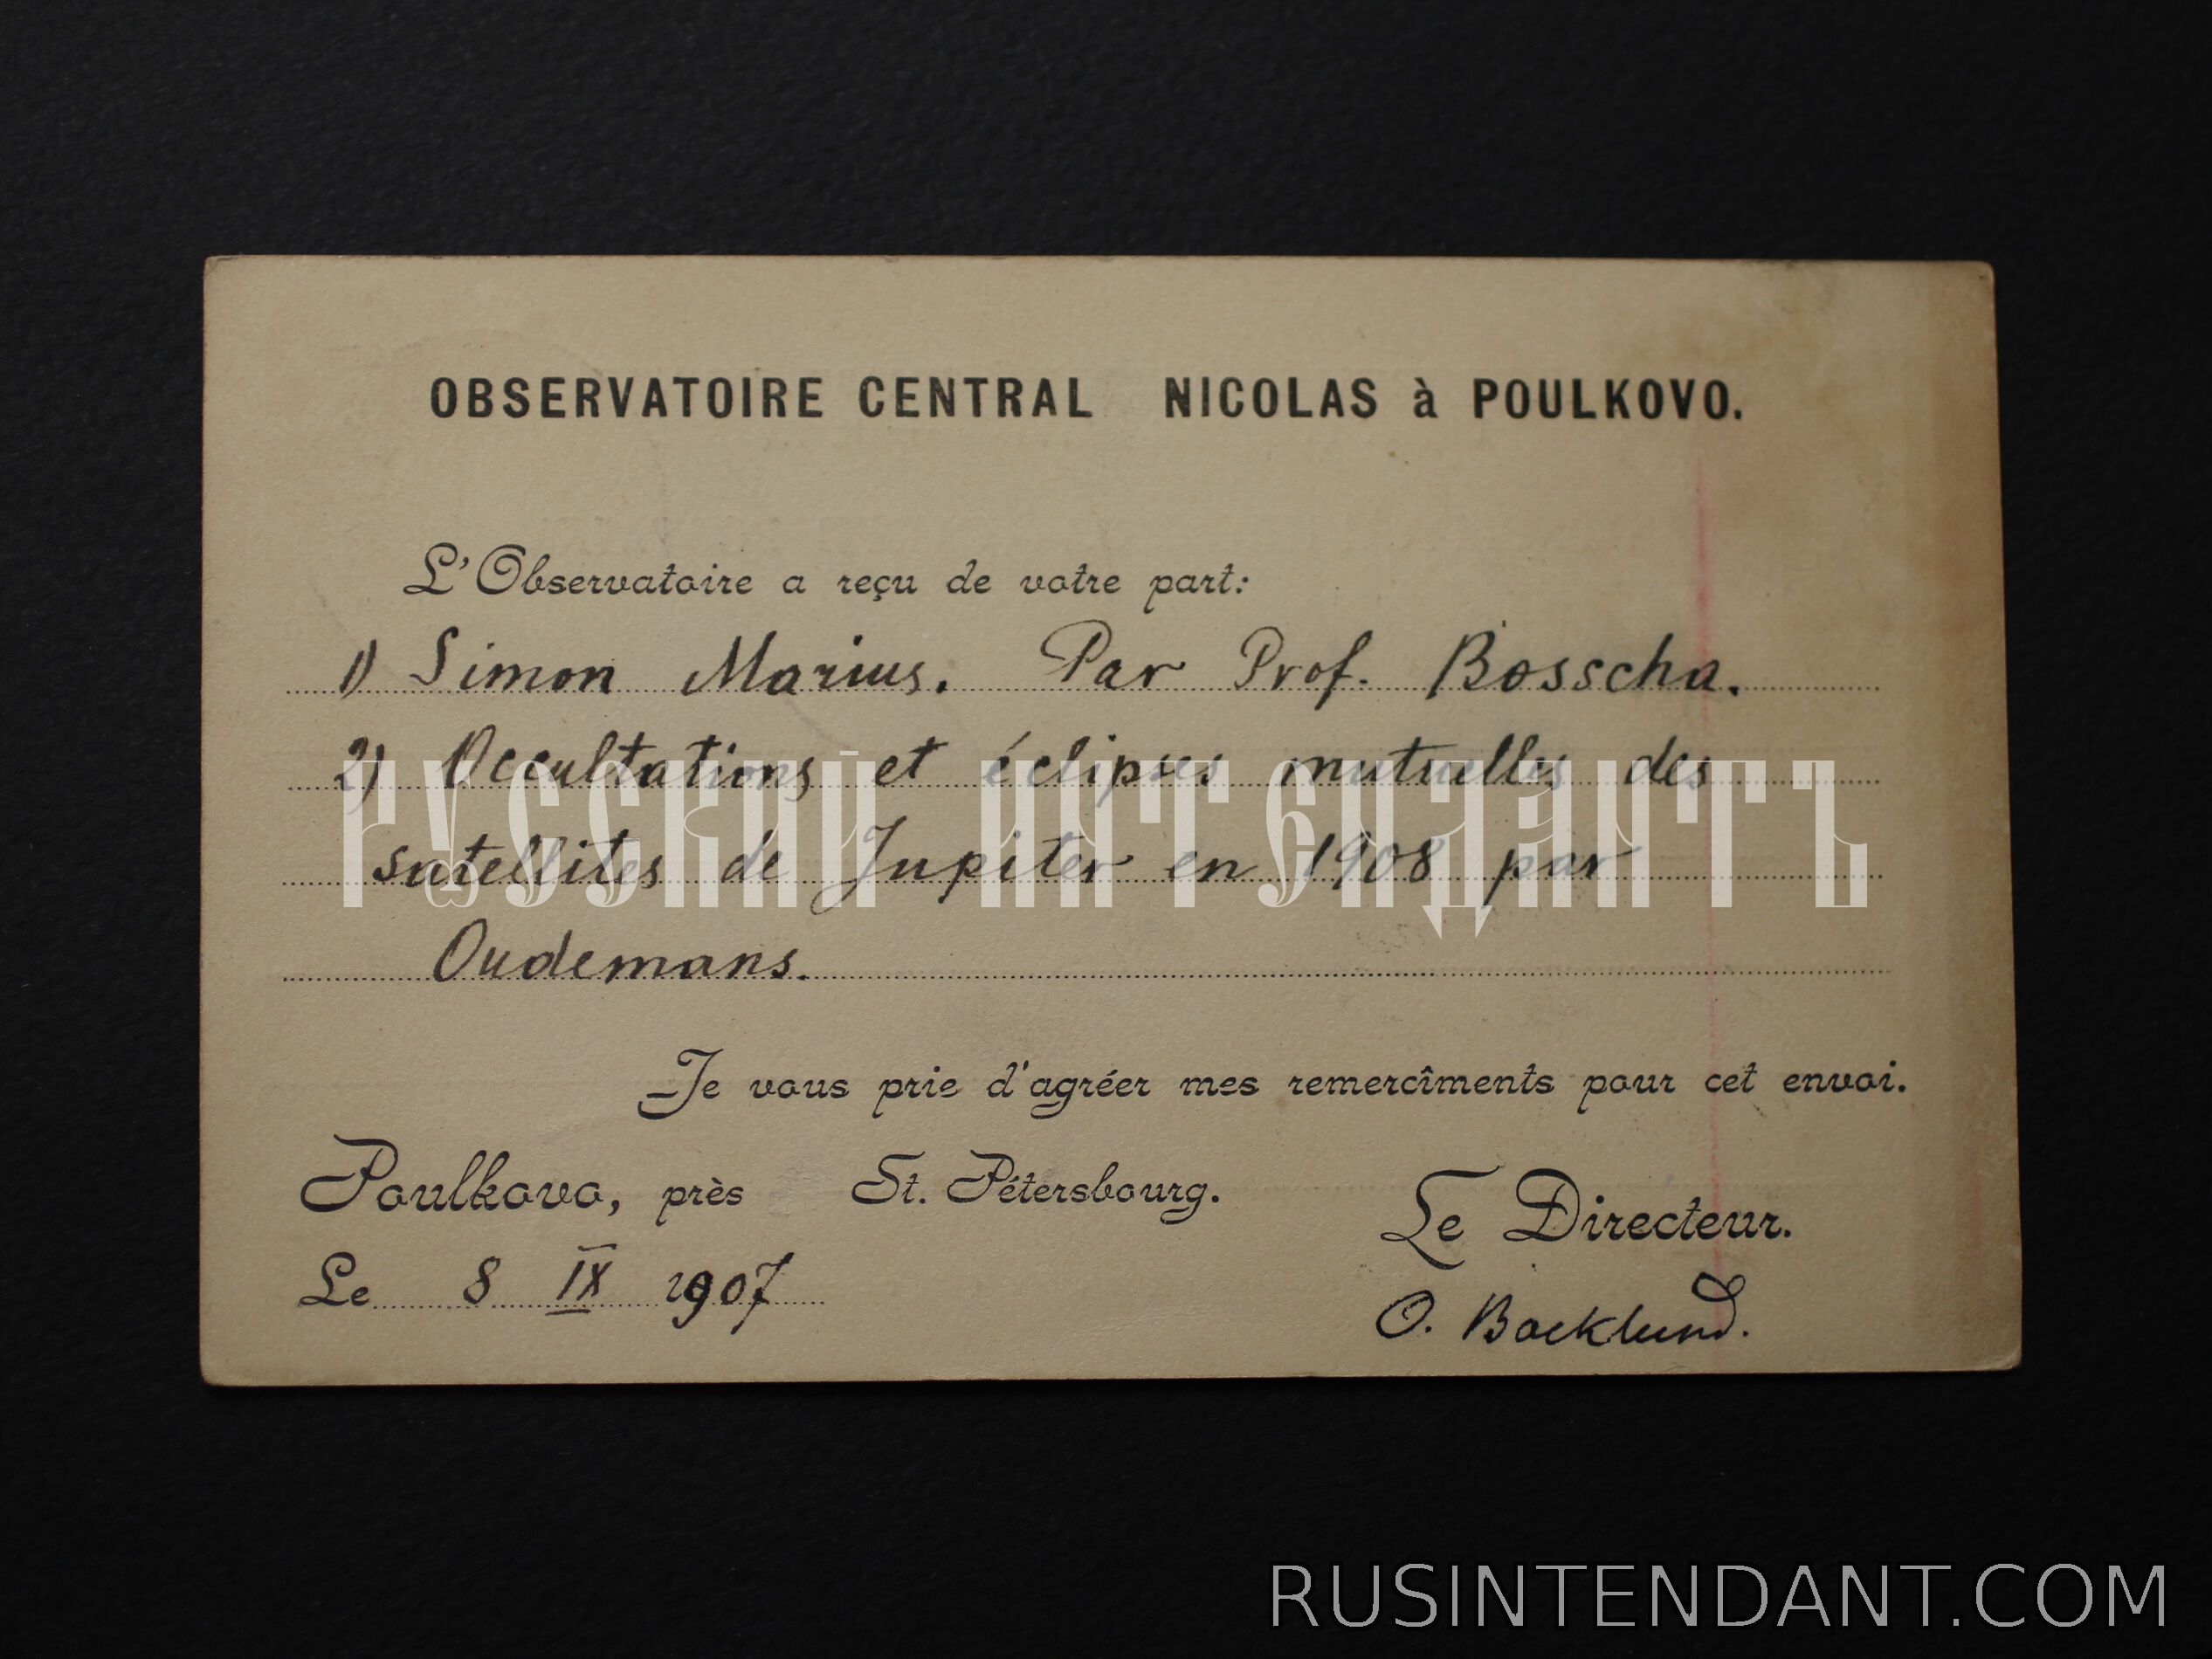 OBSERVATOIRE CENTRAL NICOLAS à POULKOVO.
L'Observatoire a reçu de votre part:
1) Simon Marius. Par Prof. Bosscha.
2) Occultations et éclipses mutuelles des
РУССКИЙ ИНТЕНДАНТЪ
satellites de Jupiter en 1908 par
Oudemans.
Je vous prie d'agréer mes remercîments pour cet envoi.
Poulkovo, près St. Pétersbourg.
Le Directeur.
Le 8 IX 1907
O. Backlund.
RUSINTENDANT.COM